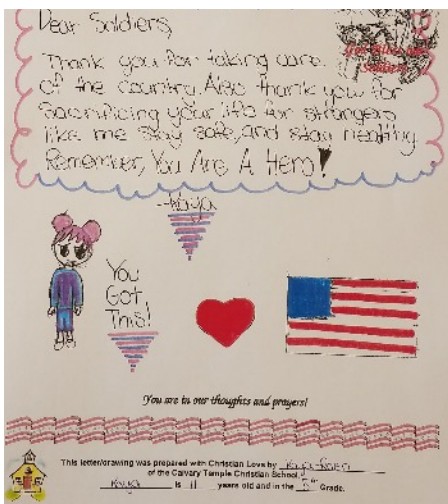 Dear Soldiers,
Thank you for taking care
of the country. Also thank you for
sacrificing your life for strangers
like me stay safe, and stay healthy
Remember, You Are A Hero!
-Kaya
You
Got
This!
You are in our thoughts and prayers!
This letter/drawing was prepared with Christian Love by
of the Calvary Temple Christian School
Kaya is 11 years old and in the 5th Grade.